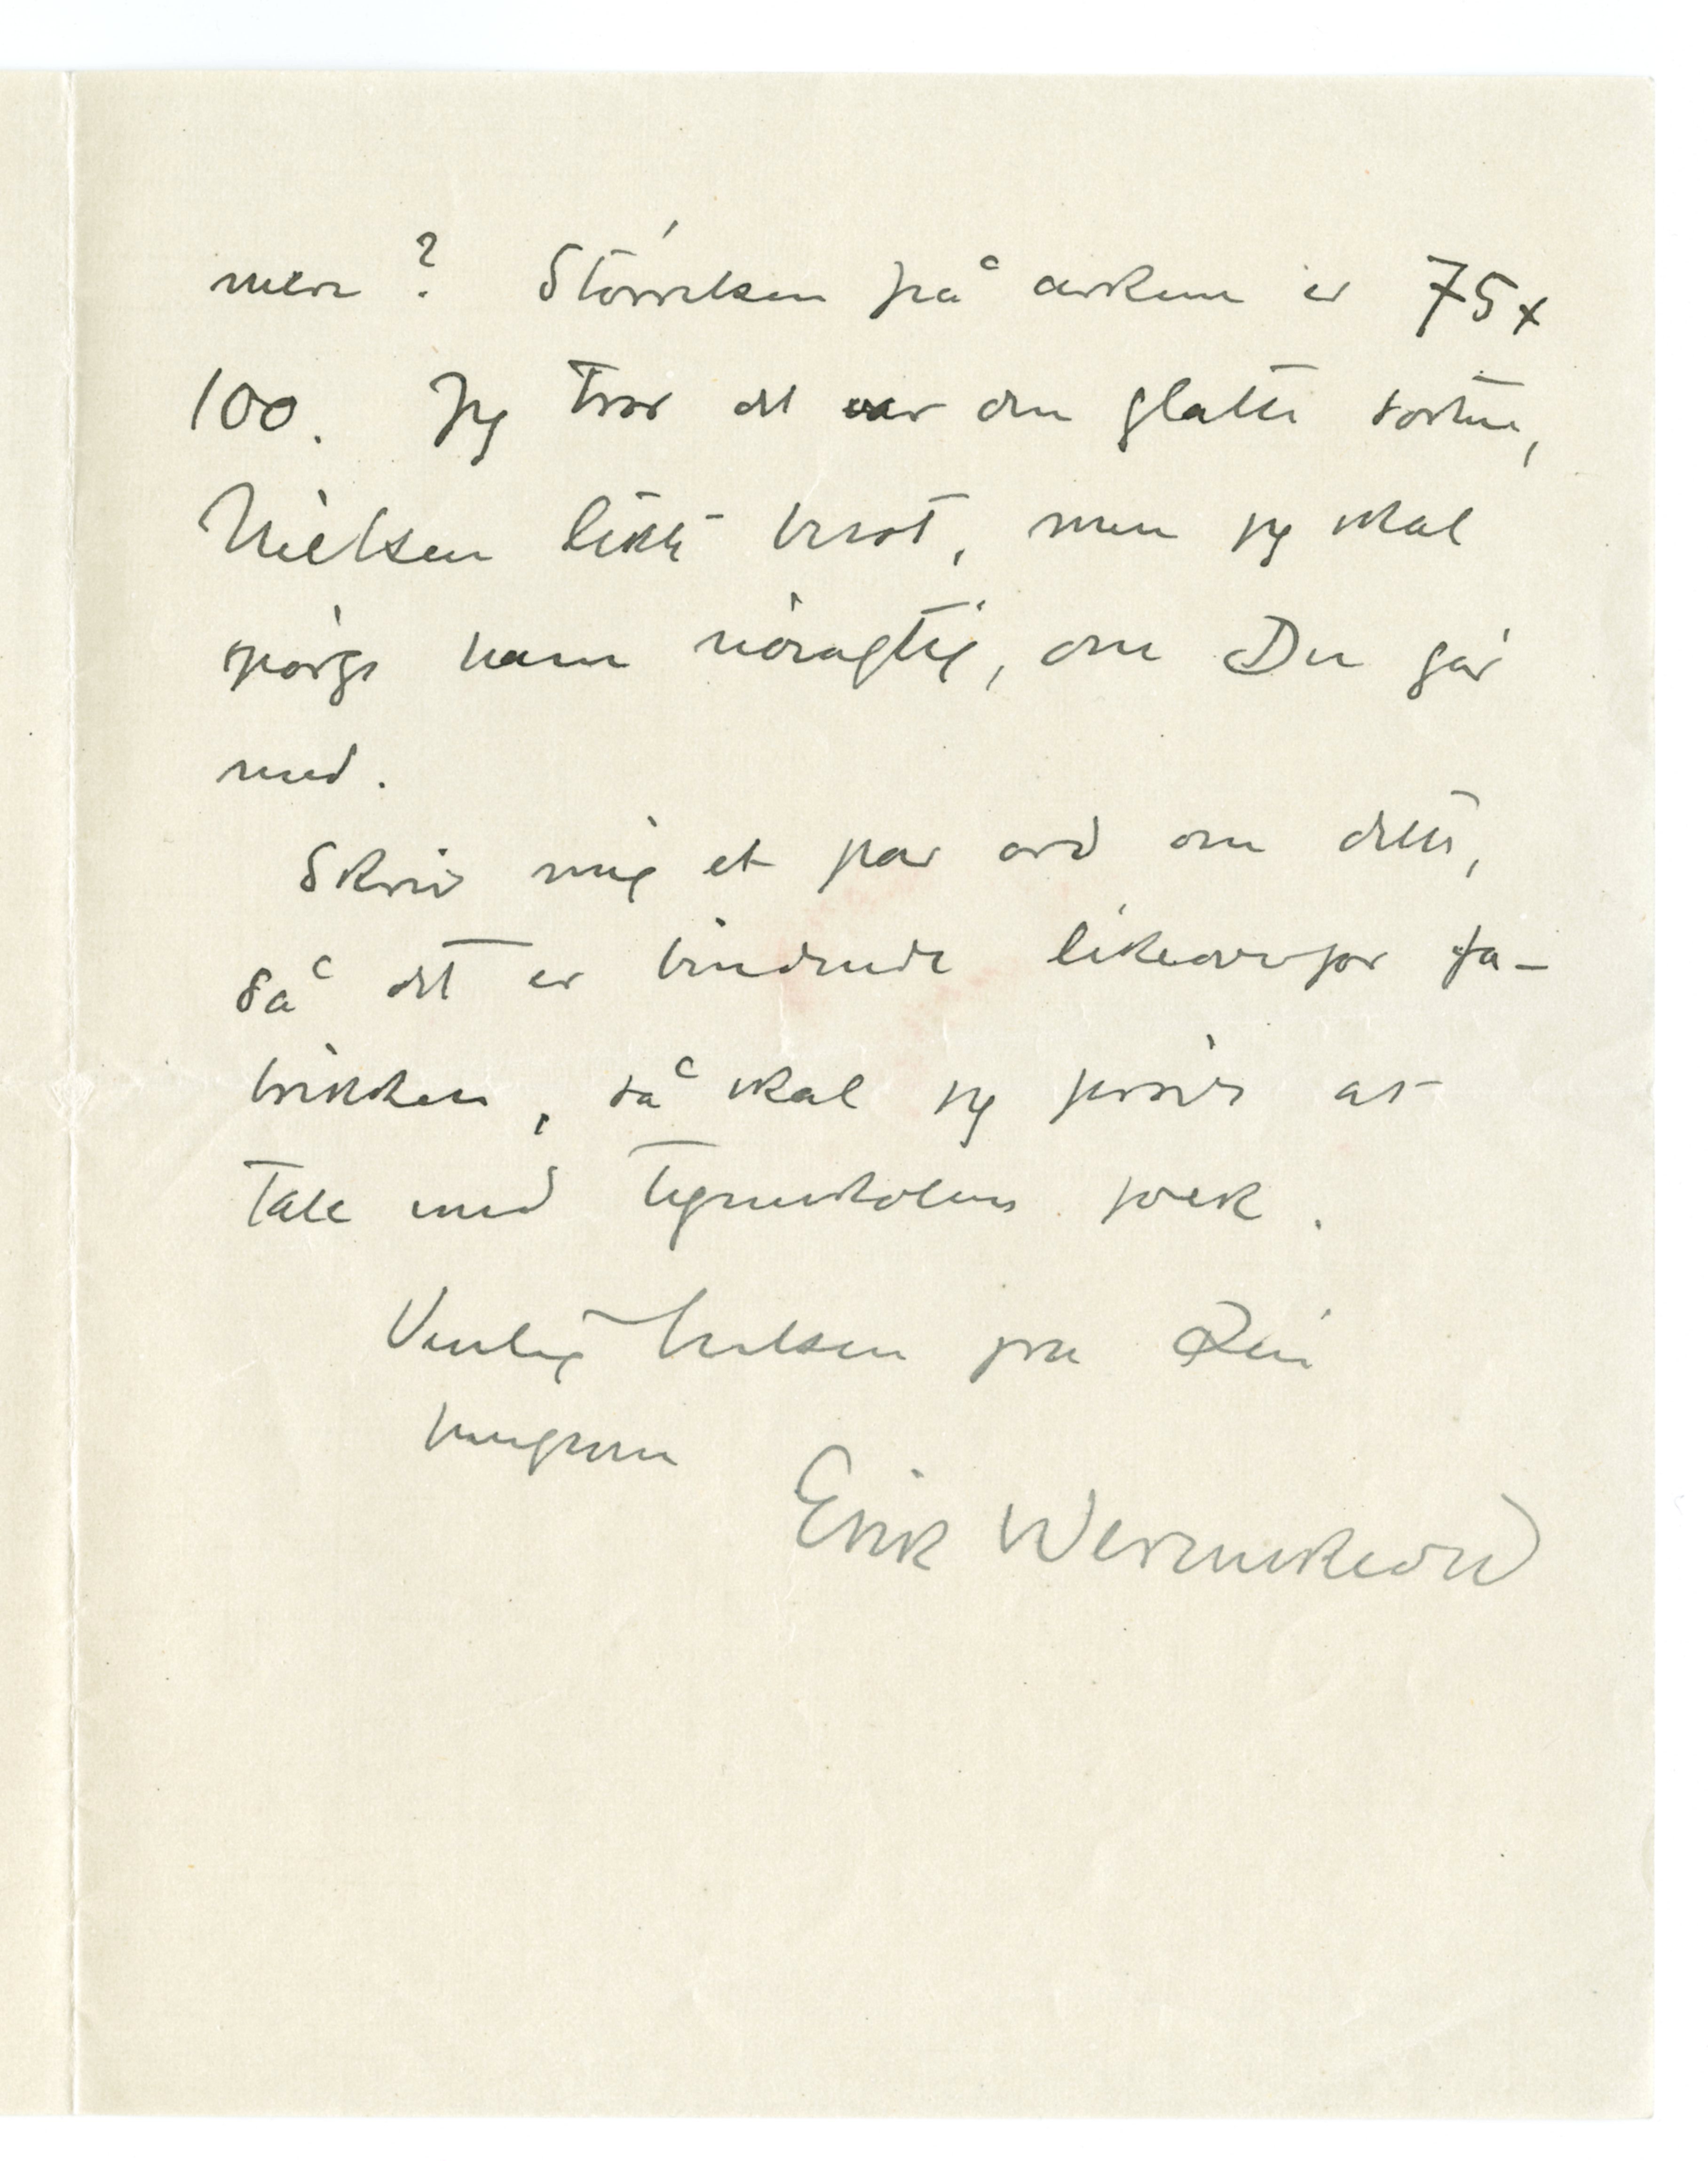 mere? Størrelsen på arkene er 75x
100. Jeg tror det var den glatte sorten,
Nielsen likte best, men jeg skal
spørge ham nøiagtig, om Du går
med.
Skriv mig et par ord om dette,
så det er bindende likeoverfor fa-
brikken, så skal jeg prøve at
tale med Tegneskolens folk.
Venlig hilsen fra Din
hengivne
Erik Werenskiold